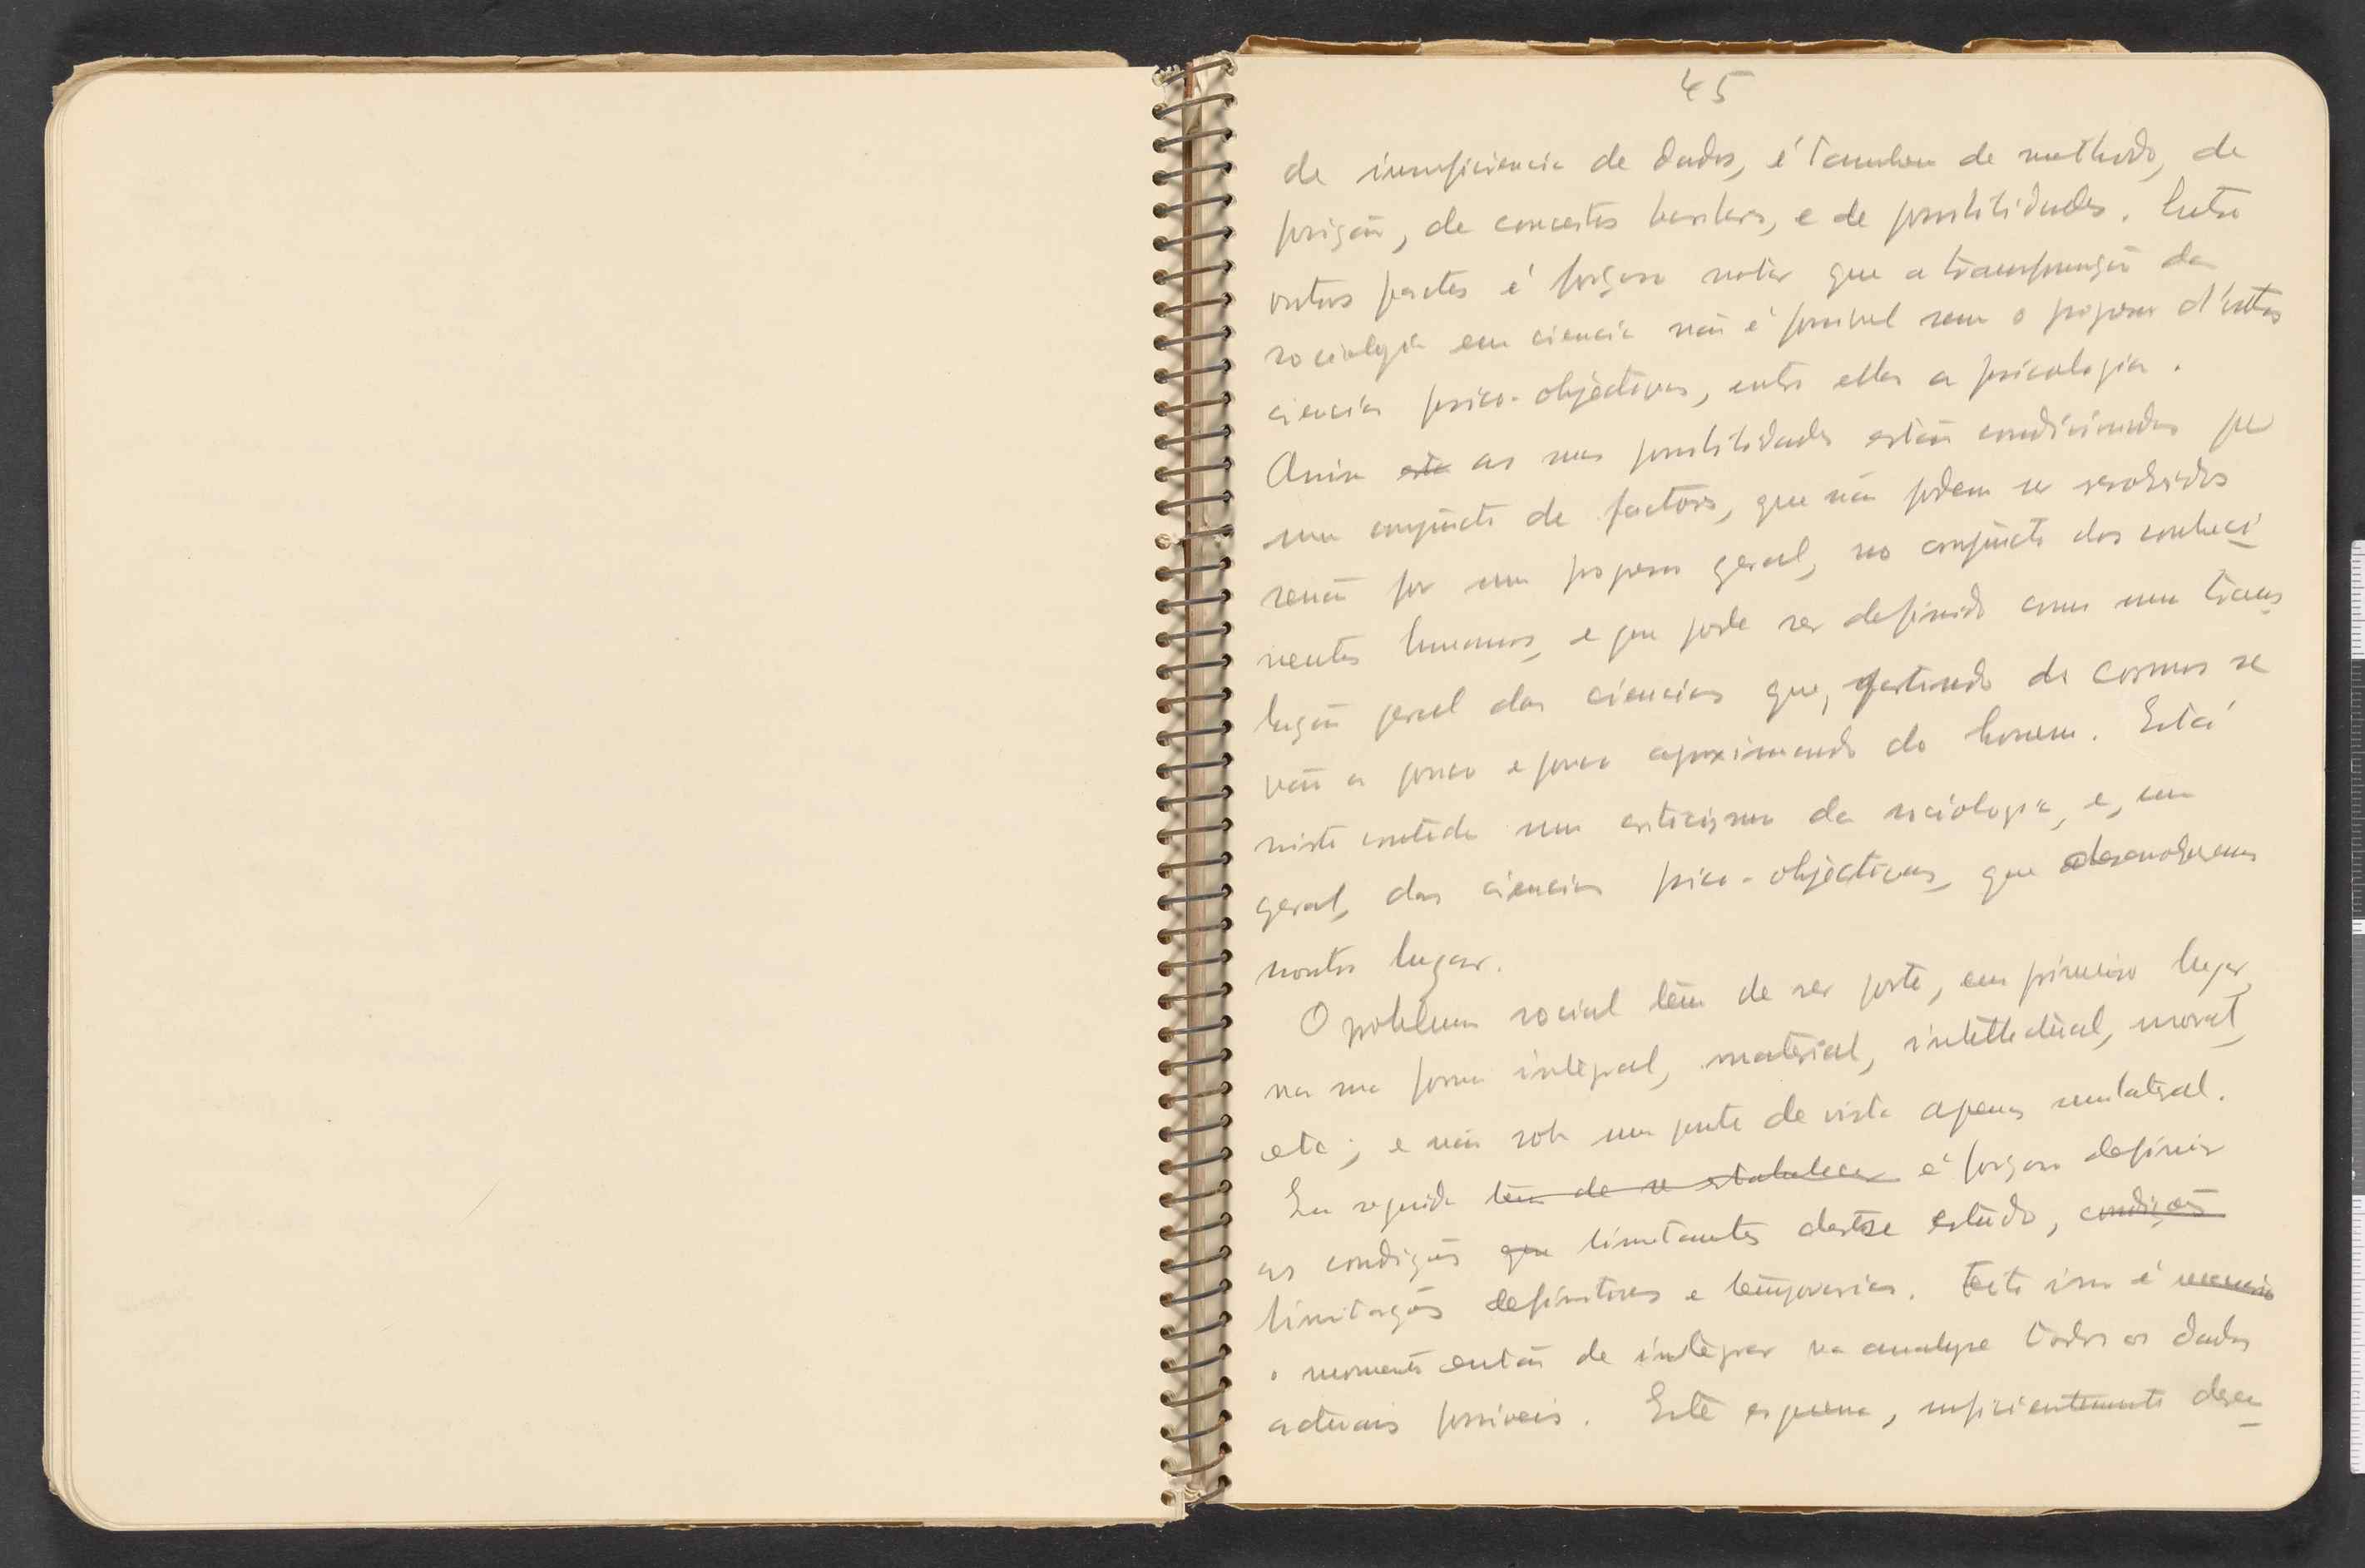 45
de insuficiencia de dados, é tambem de methodo, de
posição, de conceitos basilares, e de possibilidades. Entre
outros pontos é forçoso notar que a transformação da
sociologia em ciencia não é possivel sem o progresso d'outras
ciencias psico-objectivas, entre ellas a psicologia.
Assim esta as suas possibilidades estão condicionadas por
um conjuncto de factores, que não podem ser resolvidos
senão por um progresso geral, no conjuncto dos conheci
mentos humanos, e que pode ser definido como uma trans
lação geral das ciencias que, partindo do cosmos se
vão a pouco e pouco aproximando do homem. Está
nisto contido um criticismo da sociologia, e, em
geral, das ciencias psico-objectivas, que desenvolveremos
noutro lugar.
O problema social tem de ser posto, em primeiro lugar,
na sua forma integral, material, intellectual, moral,
etc; e não sob um ponto de vista apenas unilateral.
Em seguida tem de se estabelecer é forçoso definir
as condições que limitantes deste estudo, condições
limitações definitivas e temporarias. Feito isso é necessario
o momento então de integrar na analyse todos os dados
actuais possiveis. Este esquema, suficientemente desen